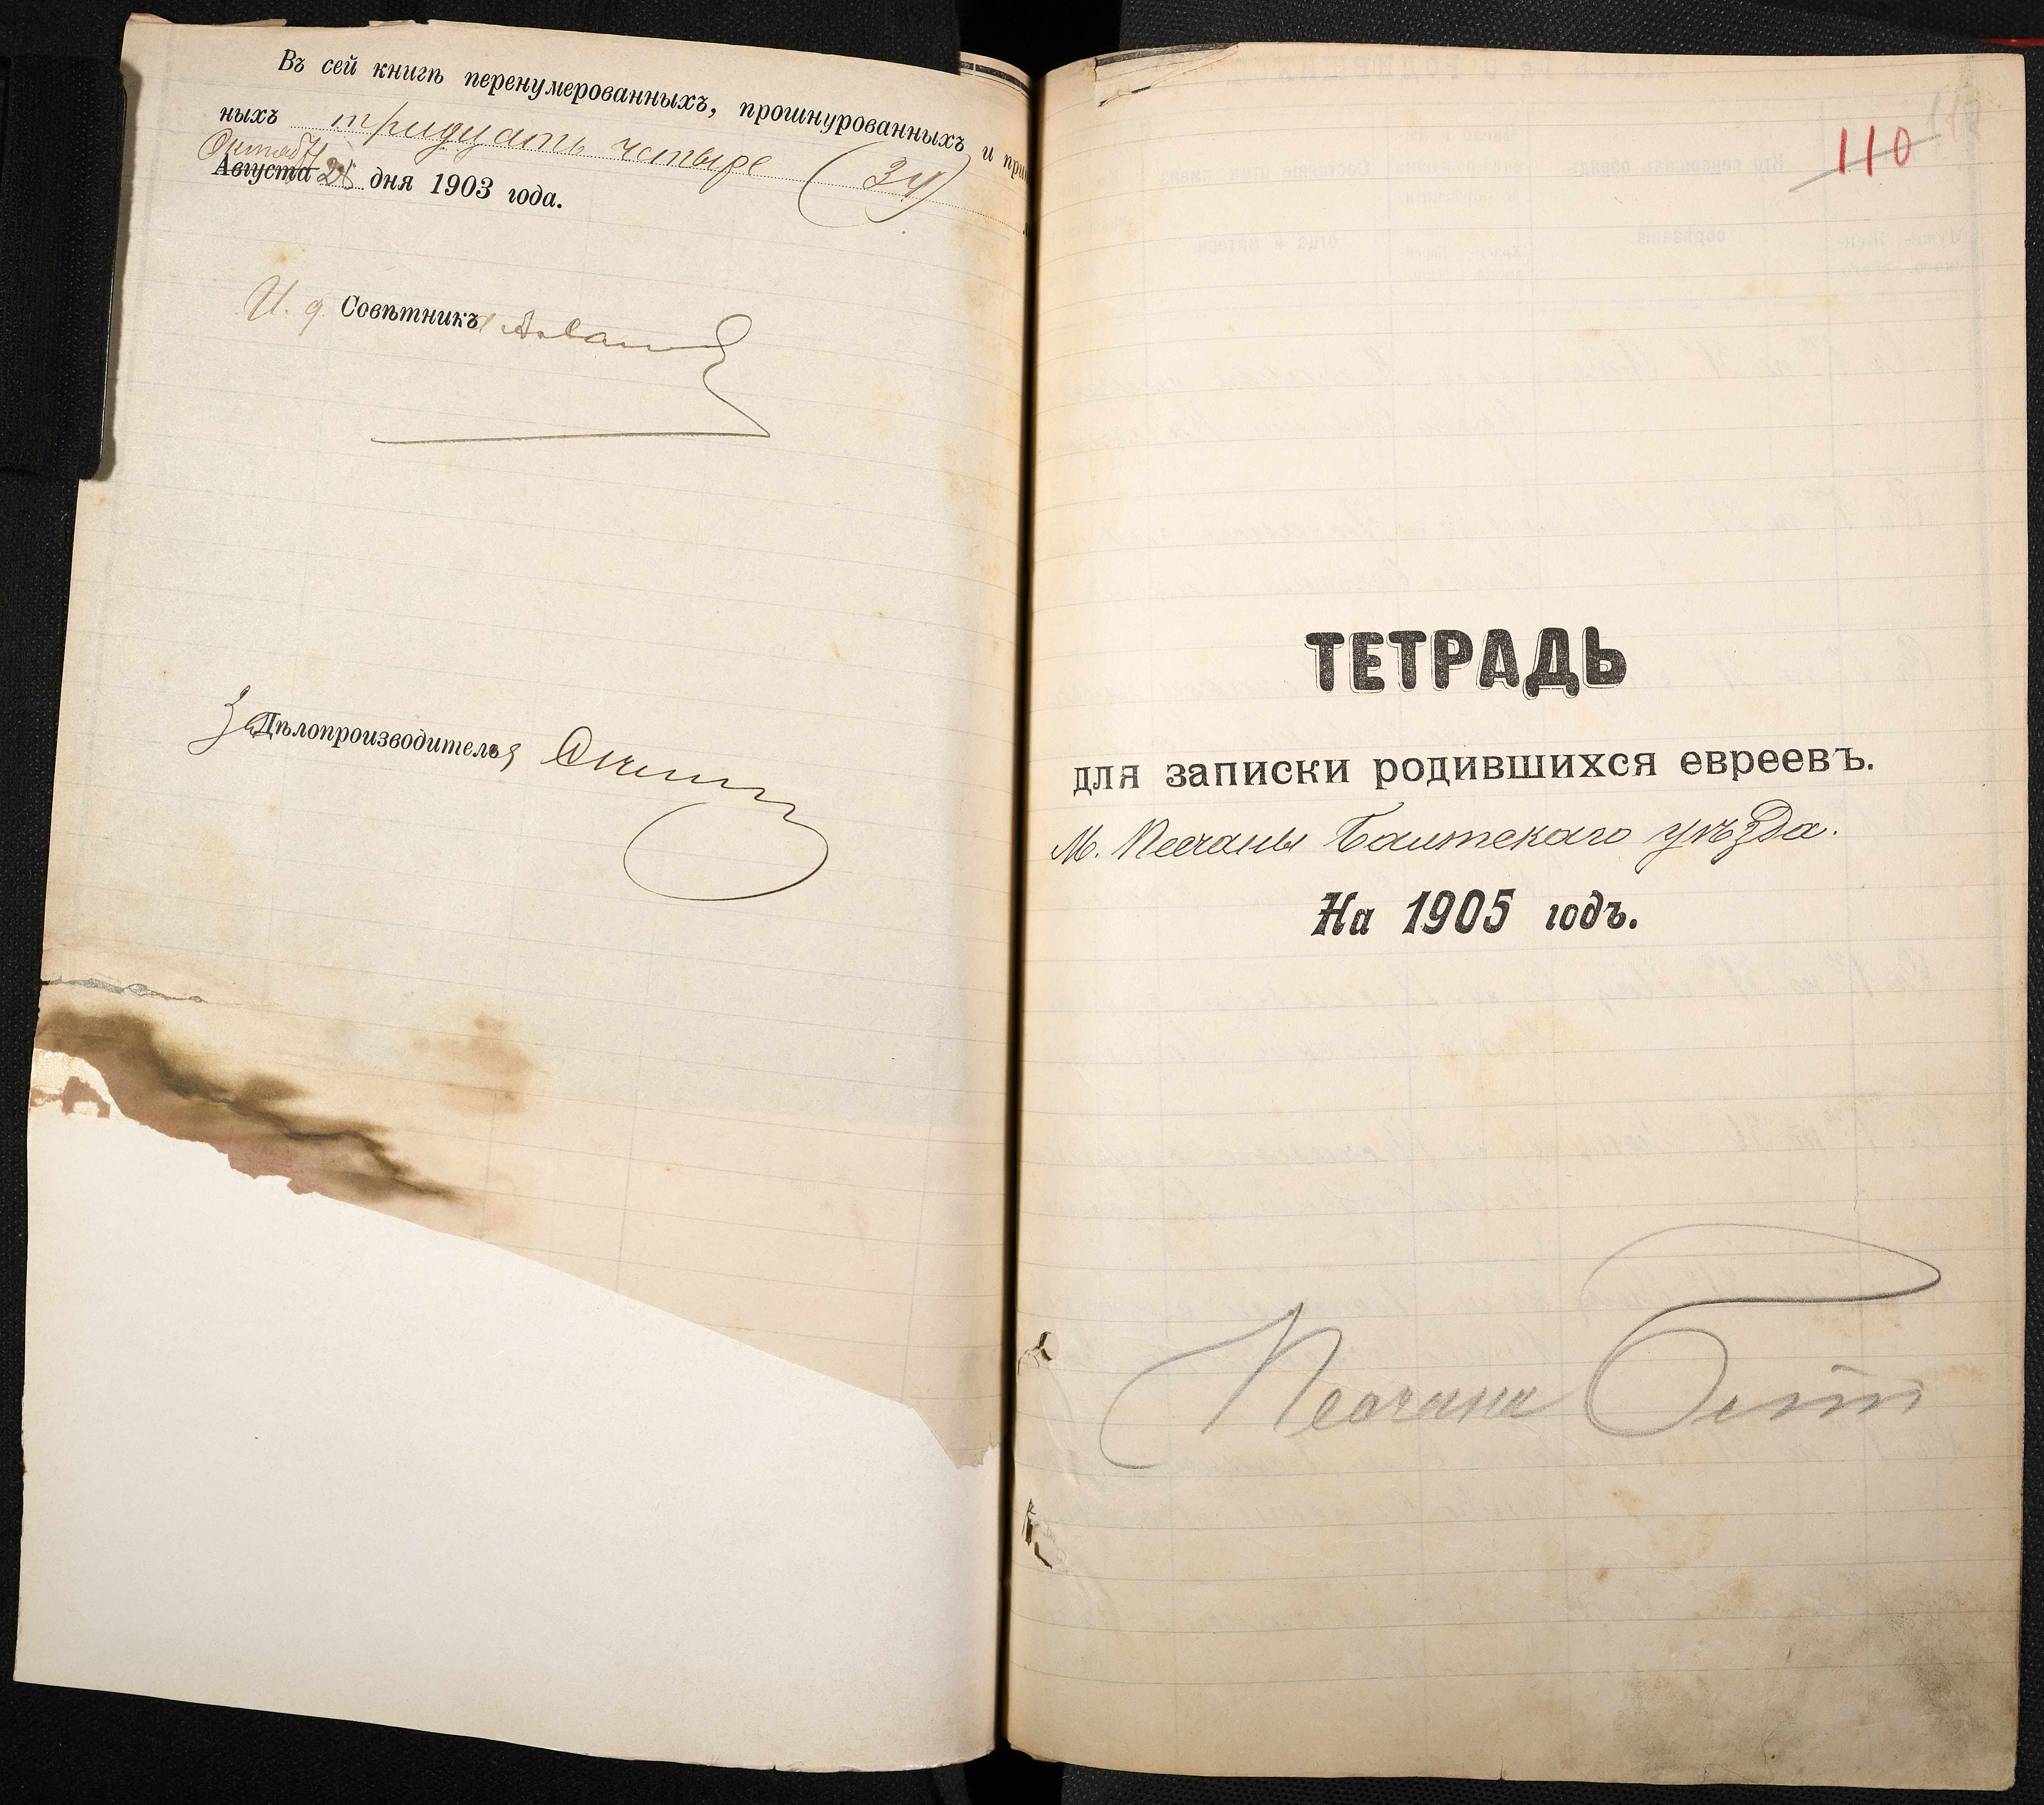 Въ сей книгѣ перенумерованныхъ, прошнурованныхъ и при
ныхъ тридцать четыре (34)
Октября
Августа 28 дня 1903 года.
И. д. Совѣтника
За Дѣлопроизводителя
110
ТЕТРАДЬ
для записки родившихся евреевъ.
М. Песчаны Балтскаго уѣзда.
На 1905 годъ.
Песчана